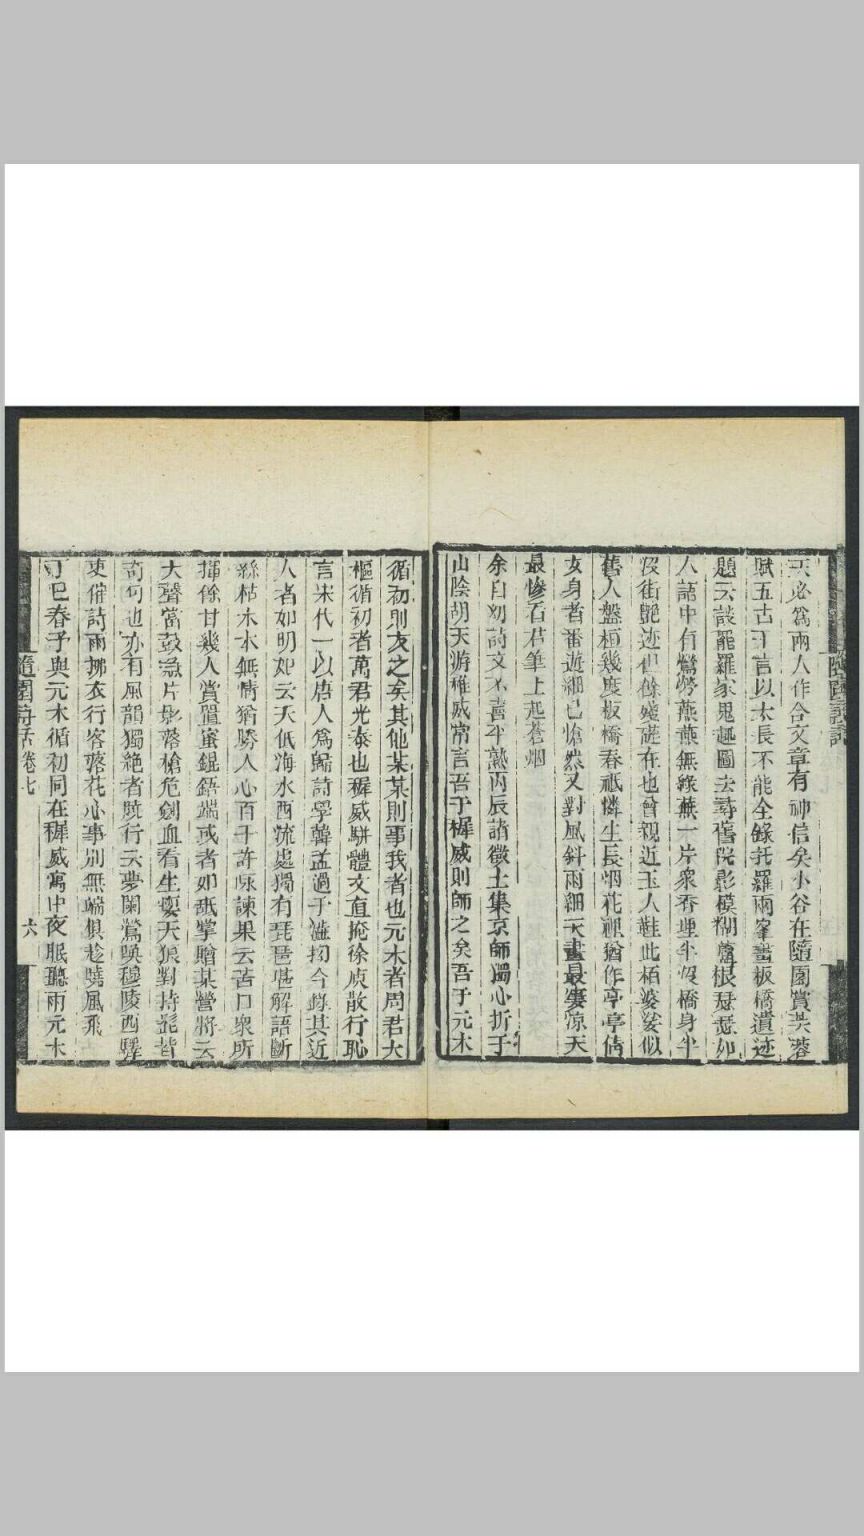 天必為兩人作合文章有神信矣小谷在隨園賞芙蓉
賦五古千言以太長不能全錄托羅兩峯畫板橋遺迹
題云談罷羅家鬼趣圖去尋舊院影模糊蘆根瑟瑟如
人語中有鶯勞燕燕無綠蕪一片衆香埋半沒橋身半
沒街艷迹但餘殘礎在也曾親近玉人鞋此柏婆娑似
舊人盤桓幾度板橋春祇憐生長烟花裡猶作亭亭倩
女身者番遊細已愴然又對風斜雨細天畫最凄涼天
最慘看君筆上起蒼烟
余自幼詩文不喜平熟丙辰諸徵士集京師獨心折于
山陰胡天游稚威常言吾于稚威則師之矣吾于元木
循初則友之矣其他某某則事我者也元木者周君大
樞循初者萬君光泰也稚威駢體文直掩徐庾散行恥
言宋代一以唐人為歸詩學韓孟過于澁拗今錄其近
人者如明妃云天低海水西流處獨有琵琶堪解語斷
絲枯木本無情猶勝人心百千許詠諫果云苦口衆所
揮餘甘幾人賞置蜜錕鋙端或者如舐掌贈某營將云
大聲當鼓急片影落槍危劍血看生癭天狼對持髭皆
奇句也亦有風韻獨絕者曉行云夢闌鶯喚穆陵西驛
吏催詩雨拂衣行客落花心事別無端俱趁曉風飛
丁巳春予與元木循初同在稚威寓中夜眠聽雨元木
隨園詩話卷七
六